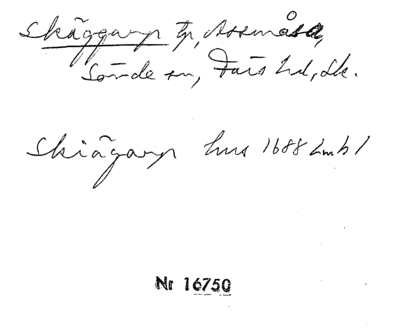 Skäggarp tp, Assmåsa,
Sövde sn, Färs hd, Sk.
Skiägarp hus 1688 Lmbl
Nr 16750